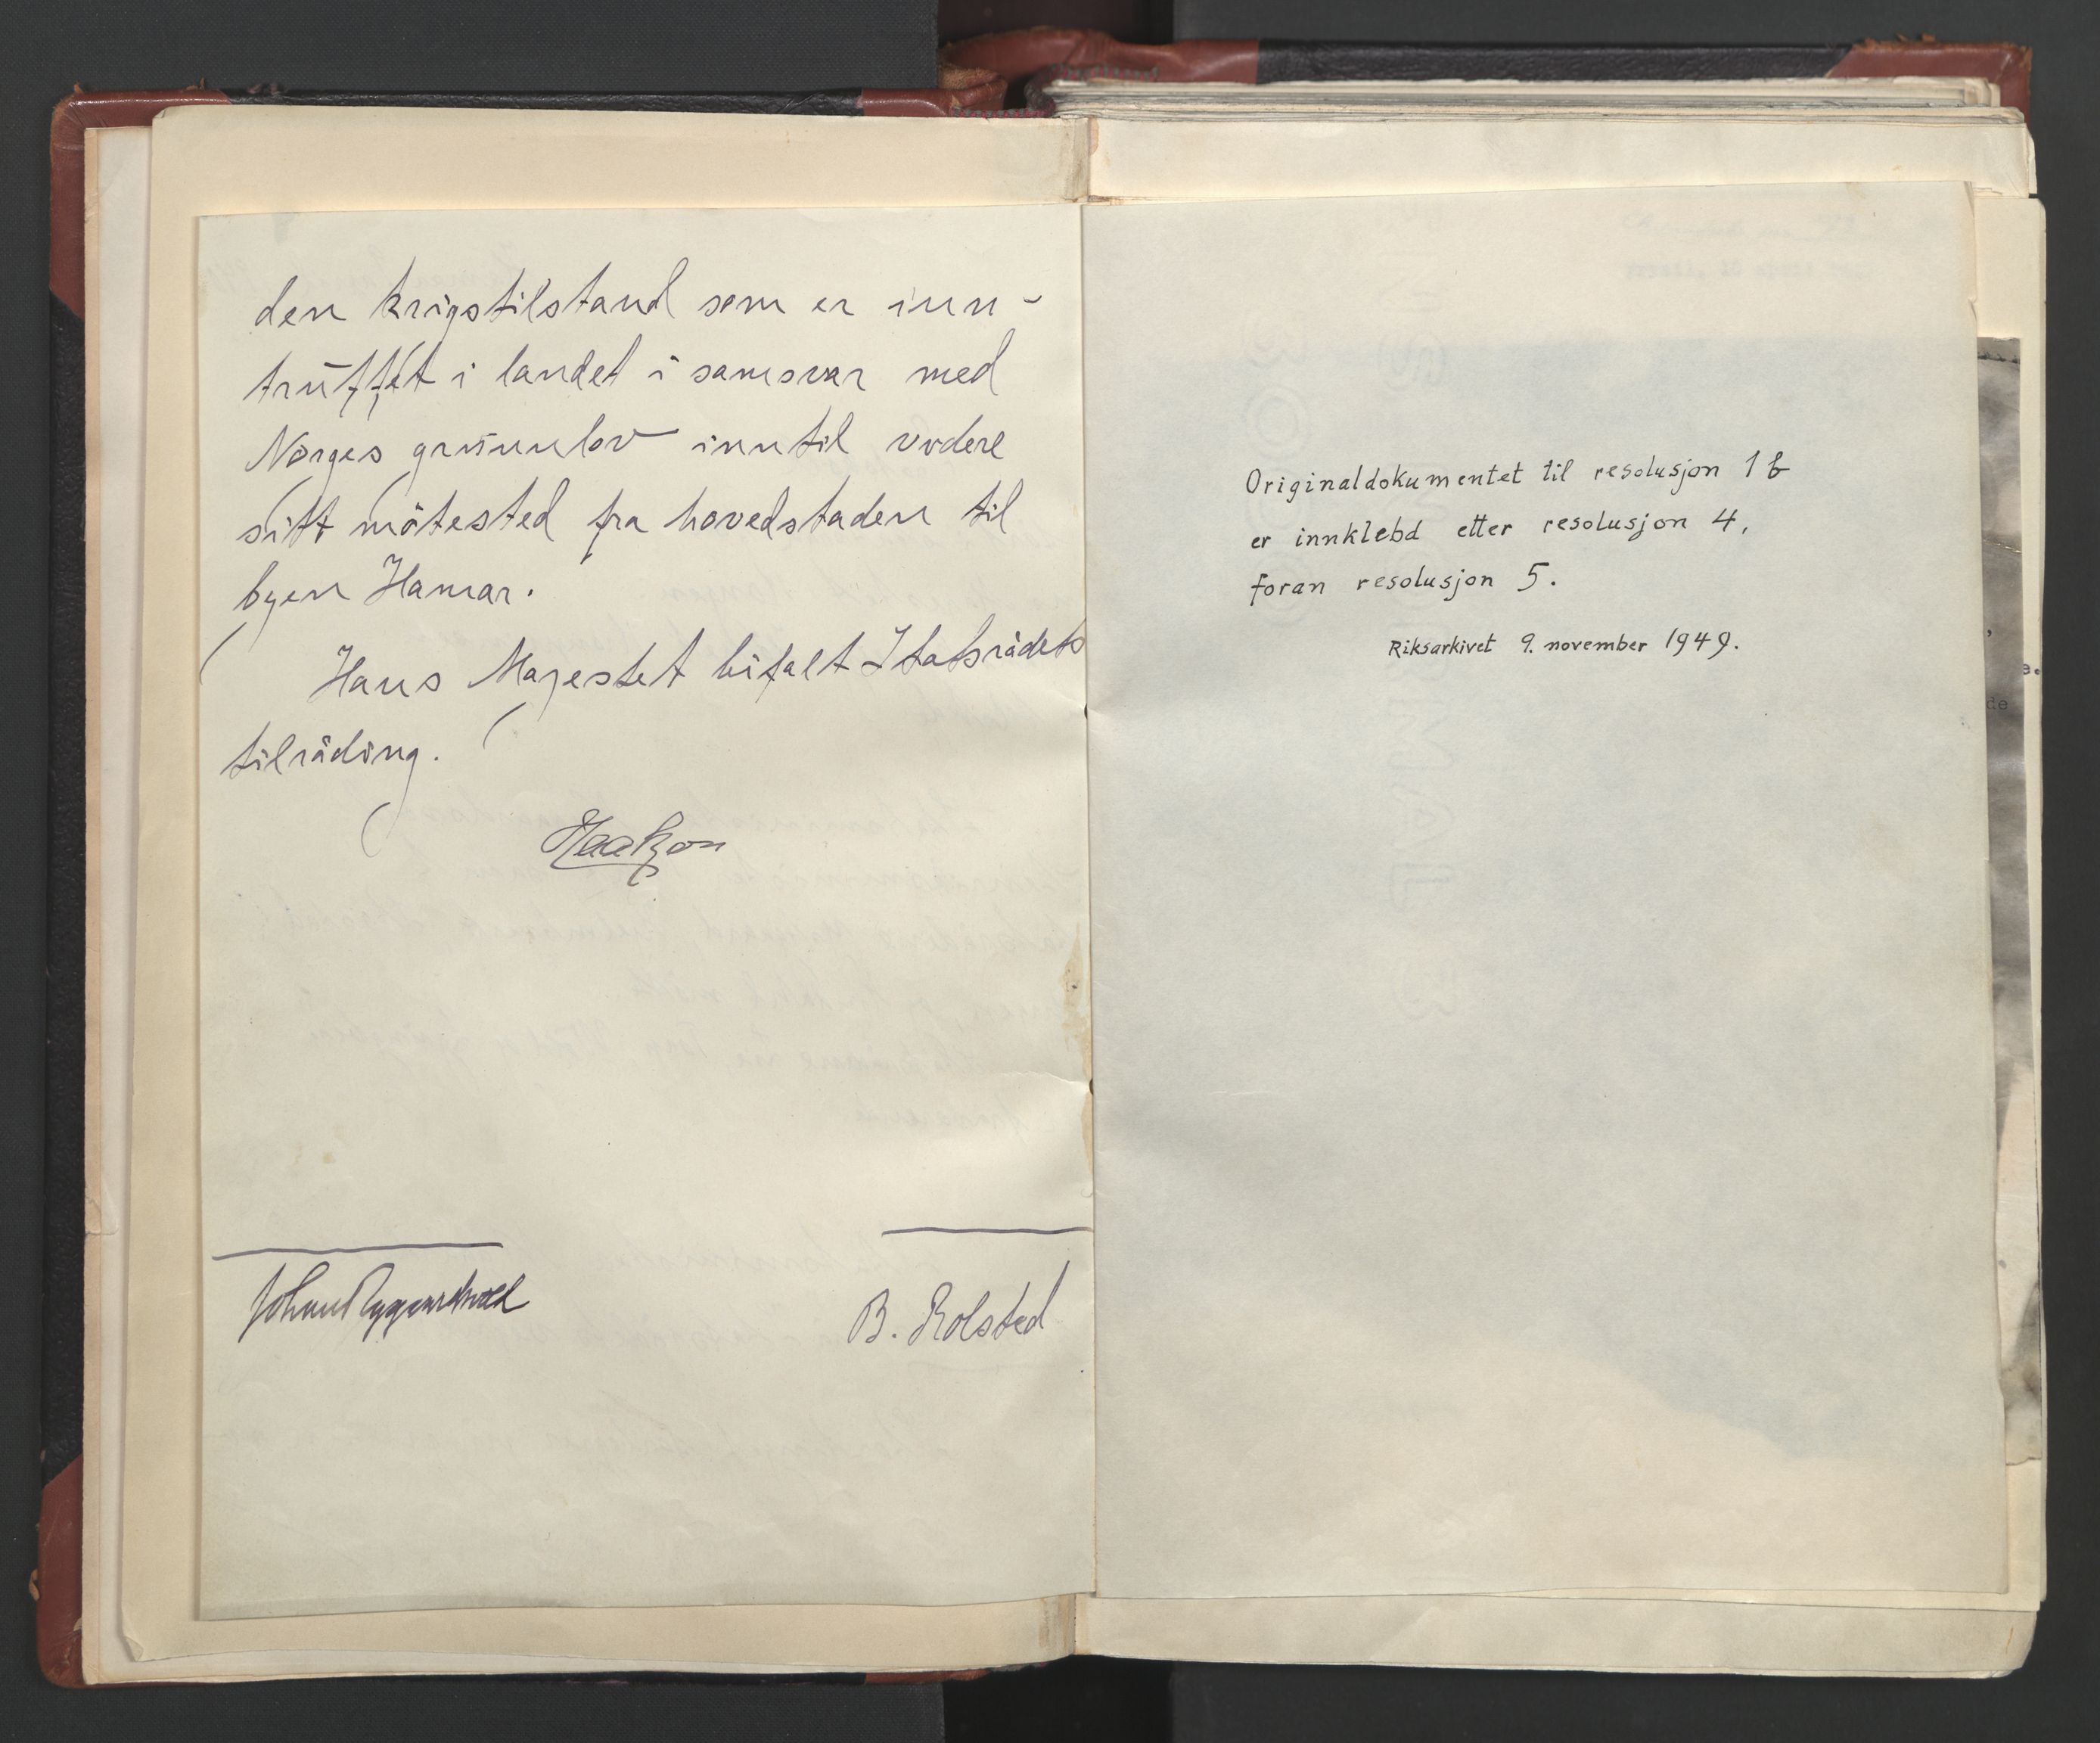 den krigstilstand som er inn-
truffet i landet i samsvar med
Norges grunnlov inntil videre
sitt mötested fra hovedstaden til
byen Hamar.
Hans Majestet bifalt Statsrådets
tilråding.
Haakon
Johan Nygaardsvold
B. Rolsted
Originaldokumentet til resolusjon 1 b
er innklebd etter resolusjon 4,
foran resolusjon 5.
Riksarkivet 9. november 1949.
de